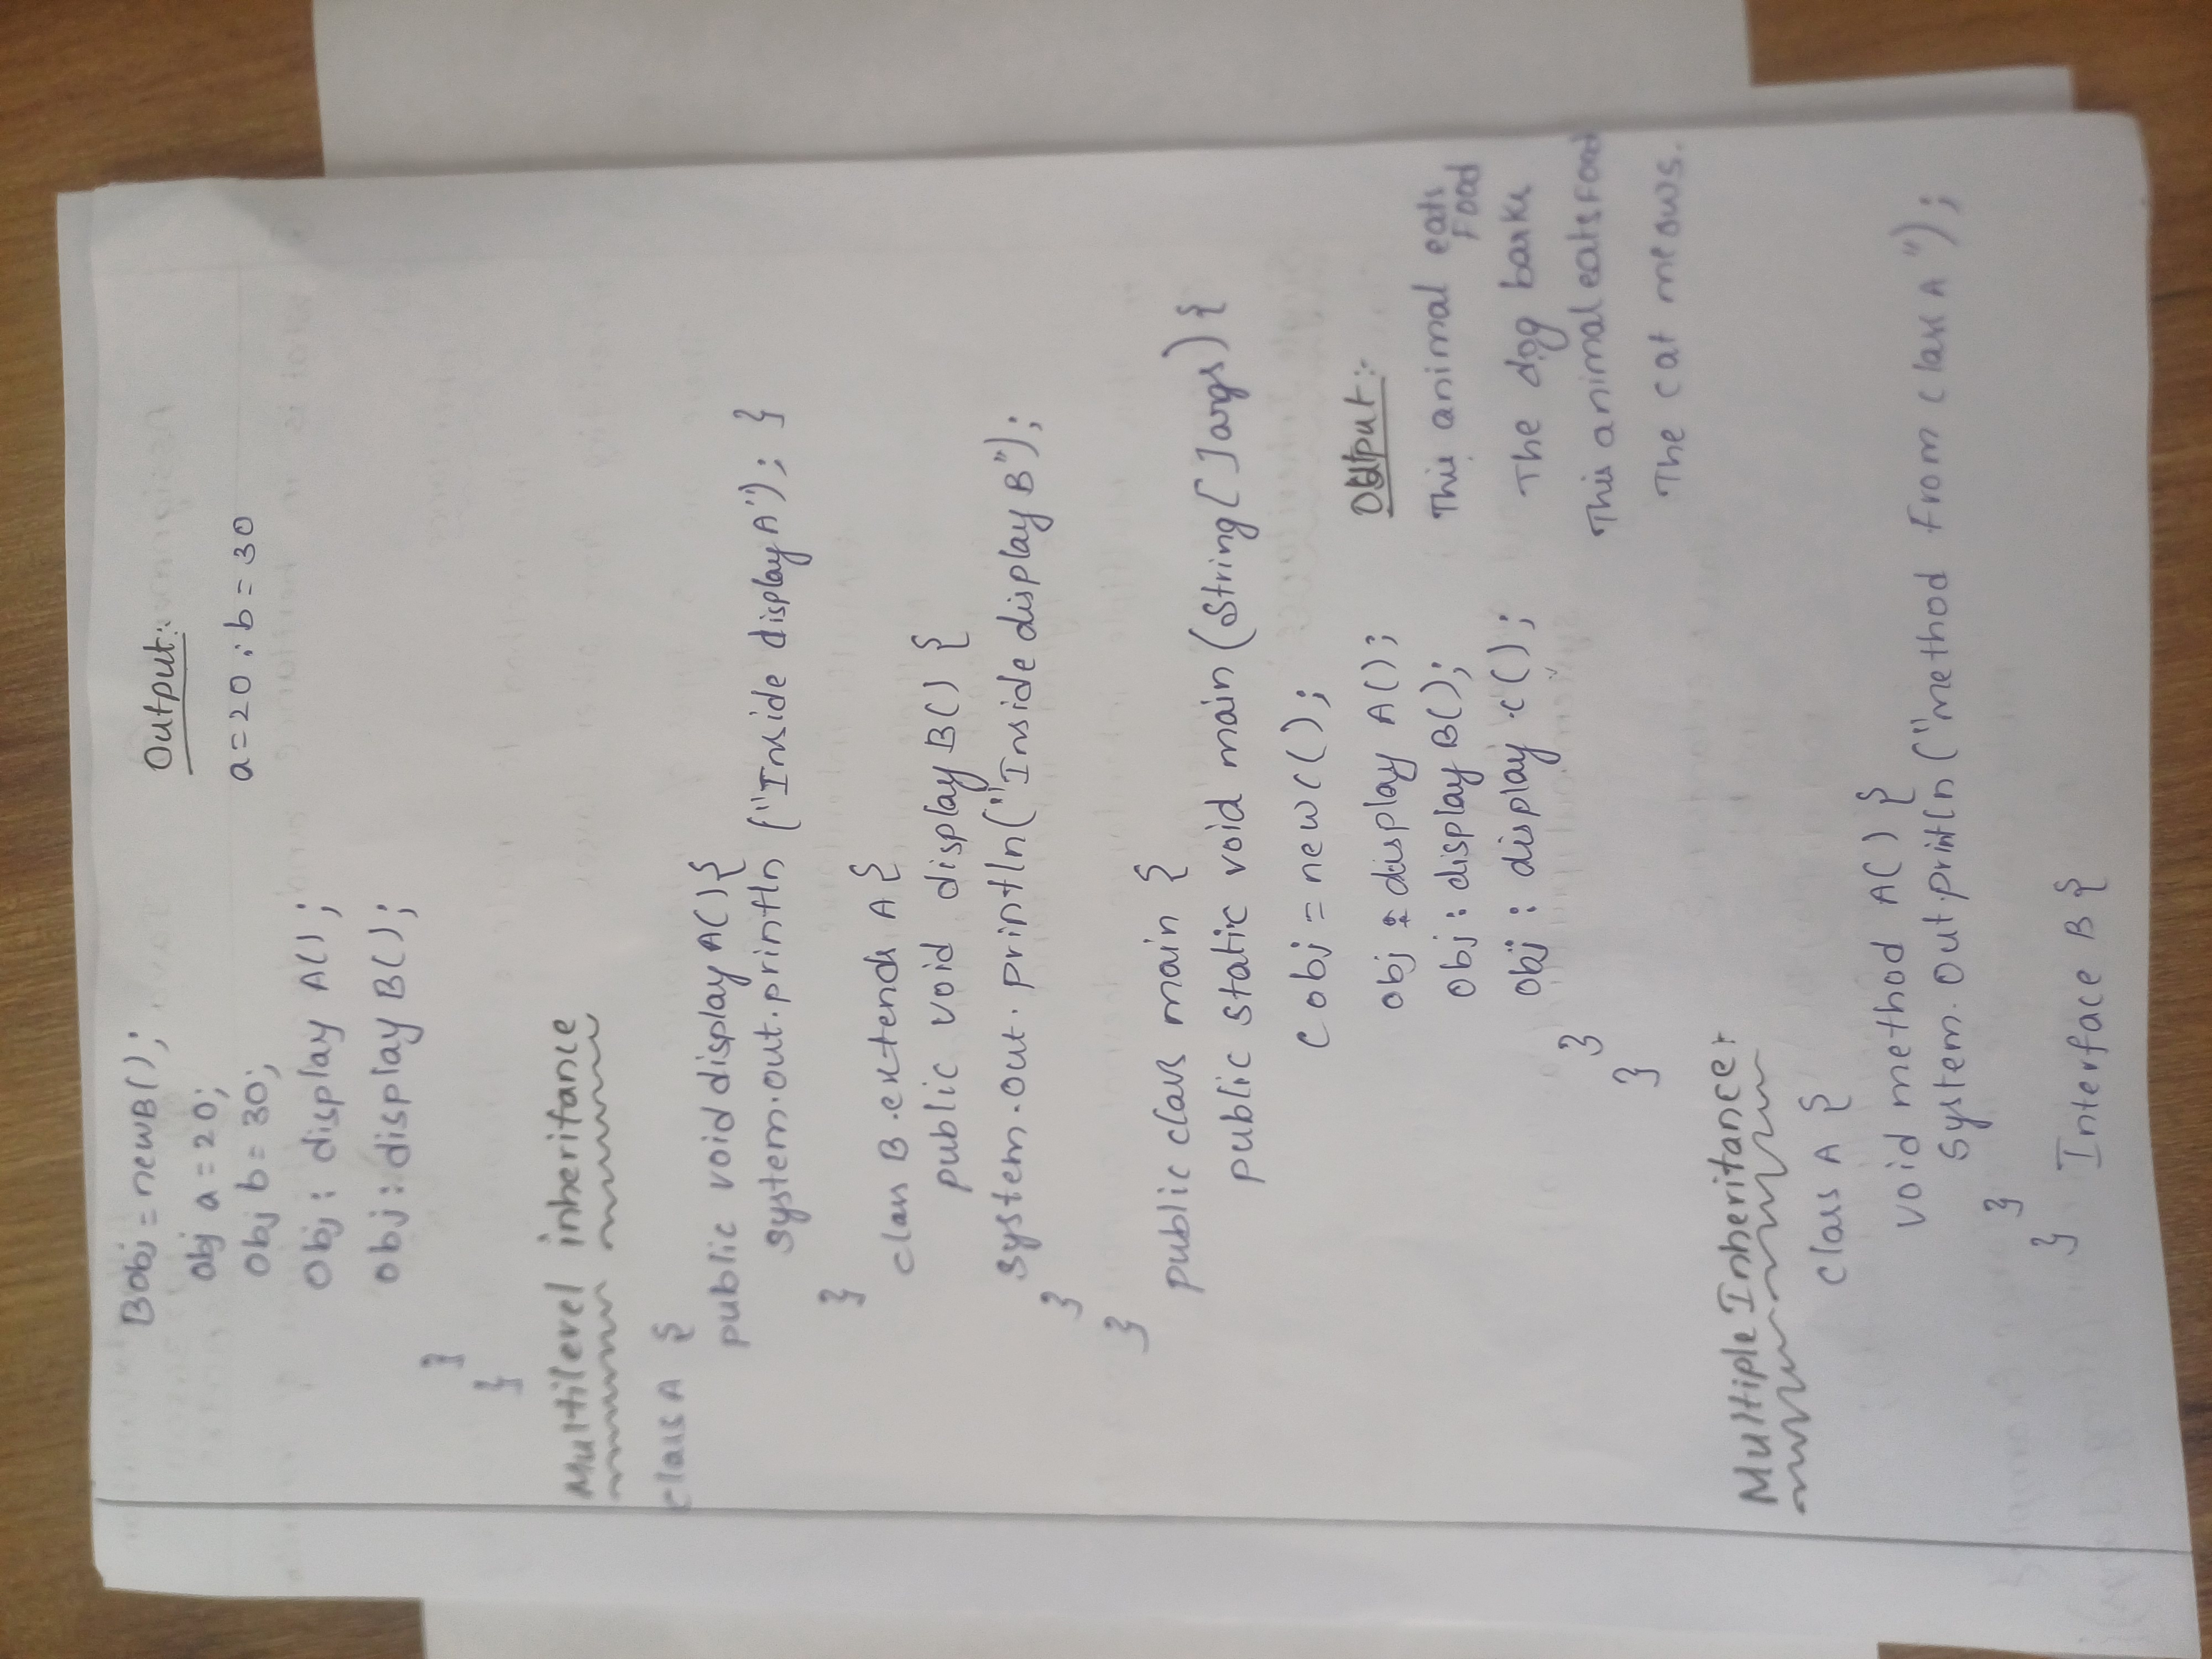 Bobj = newB();
Output:
obj a = 20;
a=20 ; b = 30
obj b = 30;
Obj : display A();
obj : display B();
}
}
Multilevel inheritance
class A {
public void display A(){
system.out.println ("Inside display A"); }
}
class B .extends A {
public void display B() {
system.out. println("Inside display B");
}
}
public class main {
public static void main (String[ ]args) {
C obj = newC();
obj : display A();
Obj : display B();
obj : display .c();
}
}
Output:-
This animal eats
Food
The dog barks
This animal eats Food
The cat meows.
Multiple Inheritance:
class A {
void method A() {
System. Out.println ("method From class A");
}
}
Interface B {